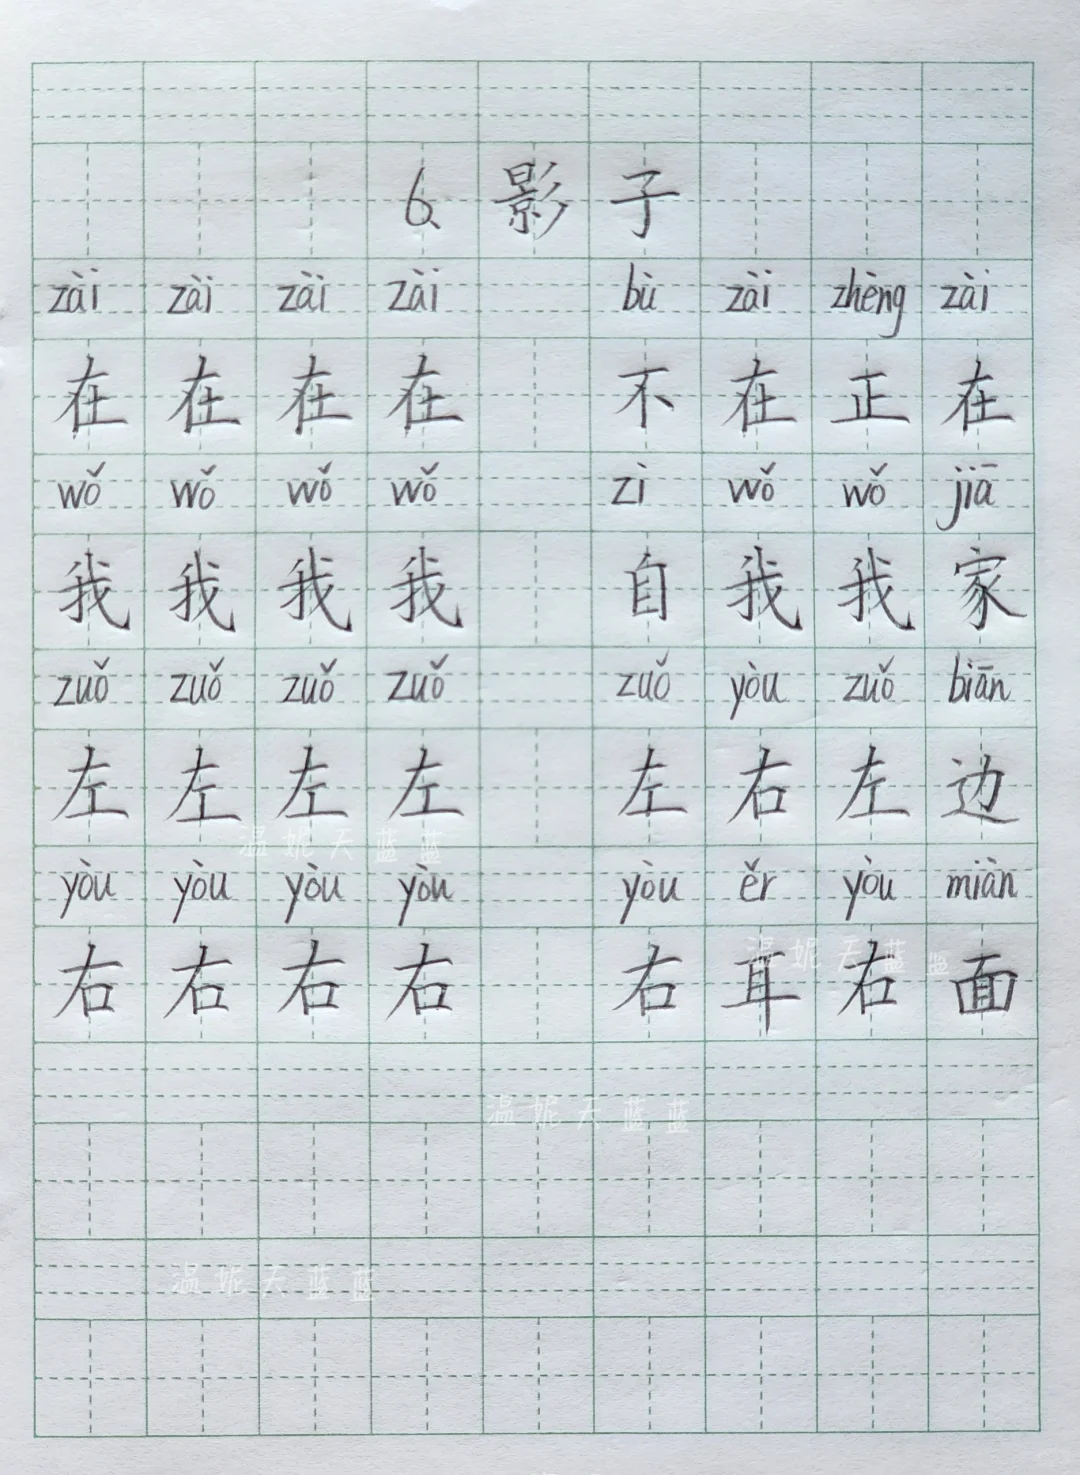 6、影子
zài zài zài zài bù zài zhèng zài
在 在 在 在 不 在 正 在
wǒ wǒ wǒ wǒ zì wǒ wǒ jiā
我 我 我 我 自 我 我 家
zuǒ zuǒ zuǒ zuǒ zuǒ yòu zuǒ biān
左 左 左 左 左 右 左 边
温妮天蓝蓝
yòu yòu yòu yòu yòu ěr yòu miàn
温妮天蓝蓝
右 右 右 右 右 耳 右 面
温妮天蓝蓝
温妮天蓝蓝